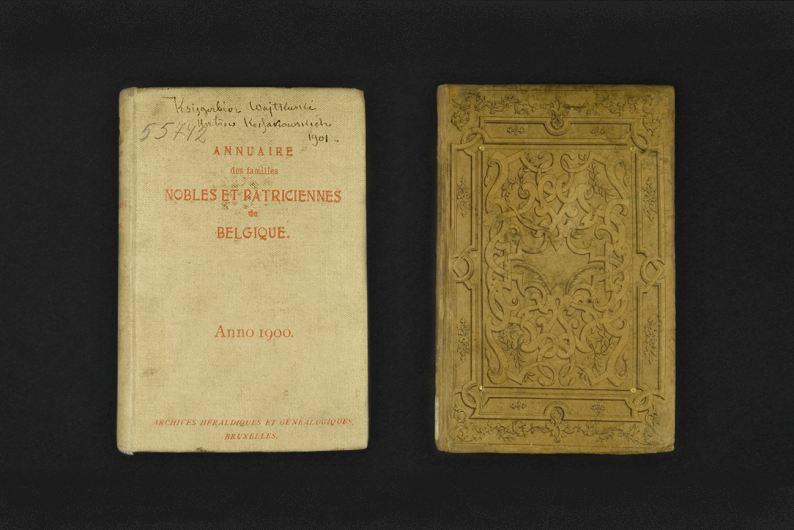 Księgozbior Wojtkuski
55742
1901
ANNUAIRE
des familles
NOBLES ET PATRICIENNES
de
BELGIQUE.
Anno 1900.
ARCHIVES HÉRALDIQUES ET GÉNÉALOGIQUES,
BRUXELLES.